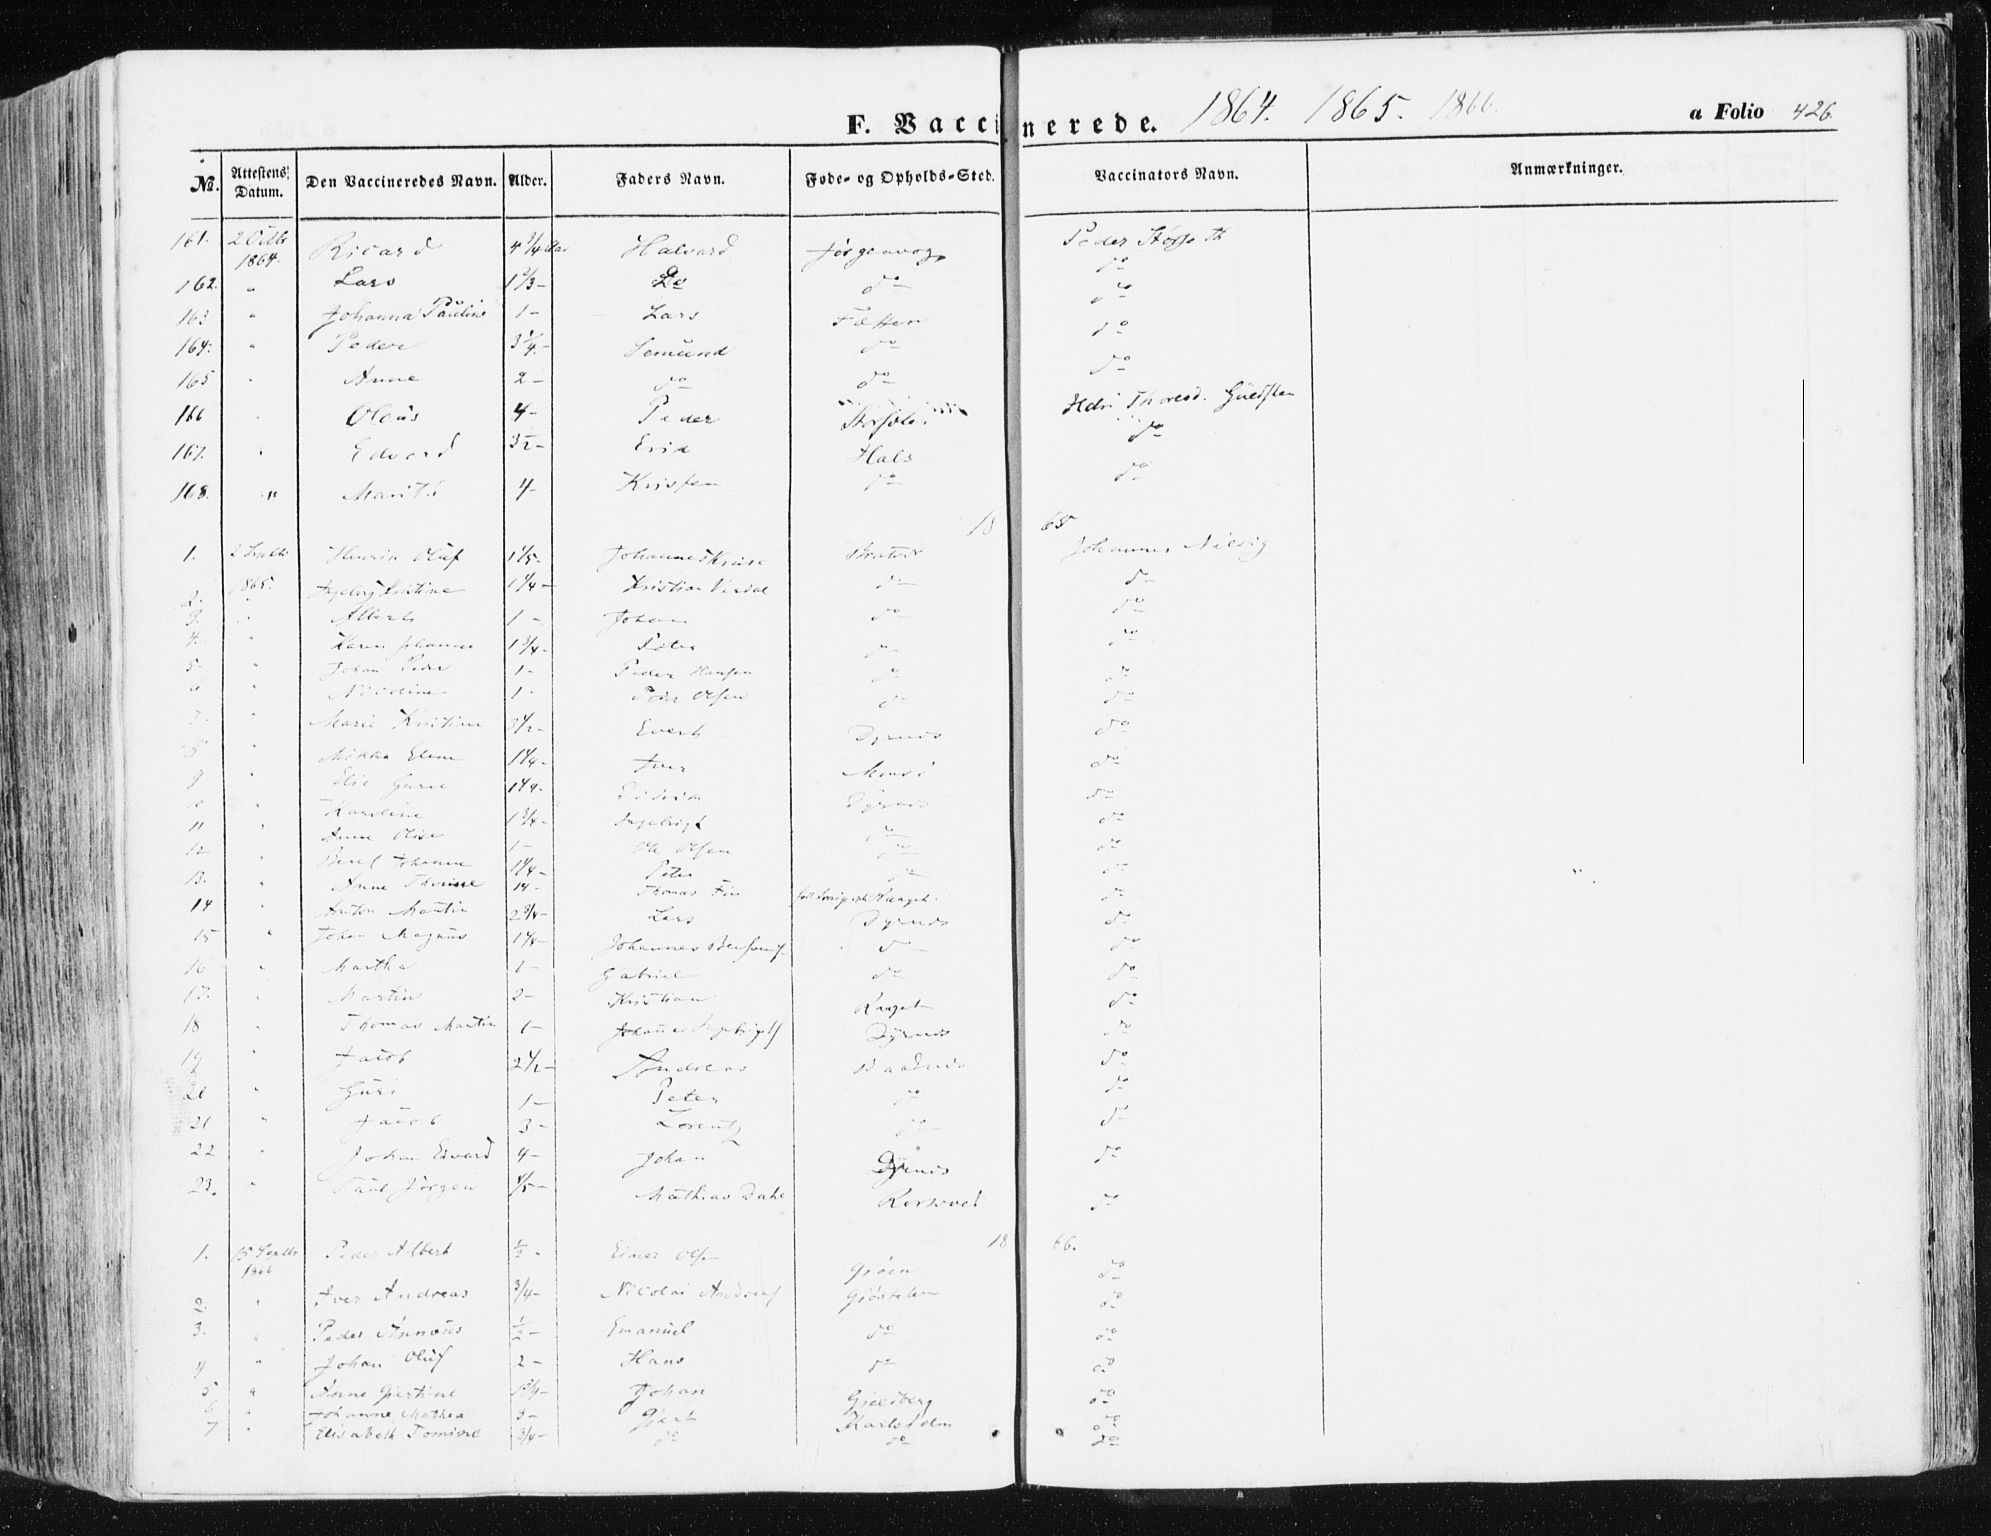 F. Vaccinerede. 1864. 1865. 1866. a Folio 426.
No. Attestens Datum. Den Vaccineredes Navn. Alder. Faders Navn. Føde- og Opholds-Sted. Vaccinators Navn. Anmærkninger.
161. 2 Octbr 1864. Ricard 4 3/4 Aar Halvard Jørgenvog Peder
162. " Lars 1 2/3 - Do do do
163 " Johanna Pauline 1 - Lars Fætten do
164. " Peder 3 1/4 - Semund do do
165 " Anne 2 - do do do
166 " Olaus 4 - Peder Thoresd.
167. " Edvard 3 1/2 - Erik Hals do
168. " Marith 4 - Kristen do do
1865
1. 2 Septbr 1865. Henrik Oluf 1 1/5 - Johannes Johannes
2. " Ingeborg Kristine 1 1/4 - Kristian do do
3. " Albert 1 - Johan do do
4. " Karen Johanne 1 3/4 - Peter do do
5. " Johan Peder 1 - Peder Hansen do do
6 " Nicoline 1 - Peder Olsen do do
7. " Marie Kristine 3 1/2 - Evert Dyrnes do
8 " Mikka Elene 1 1/4 - Iver do
9 " Elie Gurie 1 1/4 - Dyrnes do
10 " Karoline 1 3/4 - Ingebrigt do do
11 " Anne Olise 1 - Ole Olsen do do
12 " Johanne 1 1/4 - Peter do do
13. " Anne 14 - Thomas do
14 " Anton Martin 2 3/4 - Lars Dyrnes do
15 " Johan Magnus 1 1/4 - Johannes do do
16 " Martha 1 - Gabriel do do
17. " Martin 2 - Kristian do
18 " Thomas Martin 1 - Johannes Dyrnes do
19 " Jacob 2 1/2 - Andreas do
20 " Guri 1 - Peter do do
21 " Jacob 3 - Lorentz do do
22 " Johan Edvard 4 - Johan Dyrnes do
23. " Paul Jörgen 4/5 - Mathias Dahl do
1866.
1. 15 Septbr 1866 Peder Albert 1/2 - Einer Olsen Gjøen do
2. " Iver Andreas 3/4 - Nicolai do
3. " Peder 1/2 - Emanuel do do
4 " Johan Oluf 2 - Hans do do
5 " Anne Gjertine 1 3/4 - Johan Gjedberg do
6 " Johanne Mathea 3 - Gjert do
7 " Elisabeth 3/4 - do do do